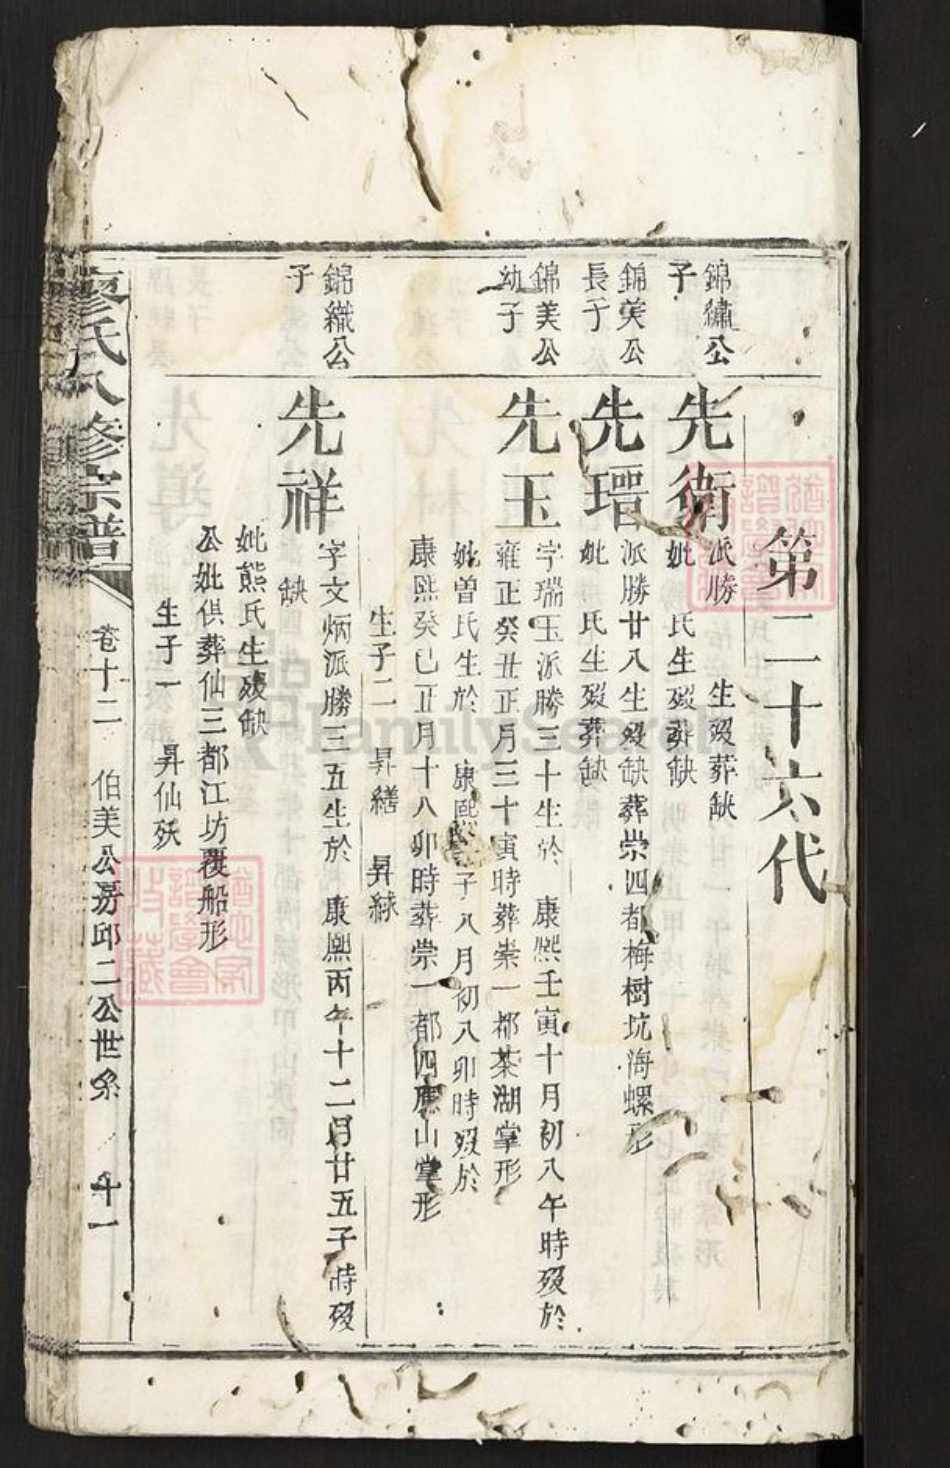 第二十六代
錦繡公
子
先衛
派勝 生歿葬缺
妣 氏生歿葬缺
錦美公
長子
先瑨
派勝廿八生歿缺葬崇四都梅樹坑海螺形
妣 氏生歿葬缺
錦美公
幼子
先玉
字瑞玉派勝三十生於 康熙壬寅十月初八午時歿於
雍正癸丑正月三十寅時葬崇一都茶湖掌形
妣曽氏生於 康熙 子八月初八卯時歿於
康熙癸巳正月十八卯時葬崇一都四 山掌形
生子二 昇繕 昇綠
錦織公
子
先祥
字文炳派勝三五生於 康熙丙午十二月廿五子時歿
缺
妣熊氏生歿缺
公妣俱葬仙三都江坊覆船形
生子一 昇仙殀
廖氏八修宗譜
卷十二 伯美公房邱二公世系 十一
FamilySearch